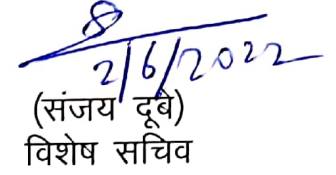 2/6/2022
(संजय दूबे)
विशेष सचिव